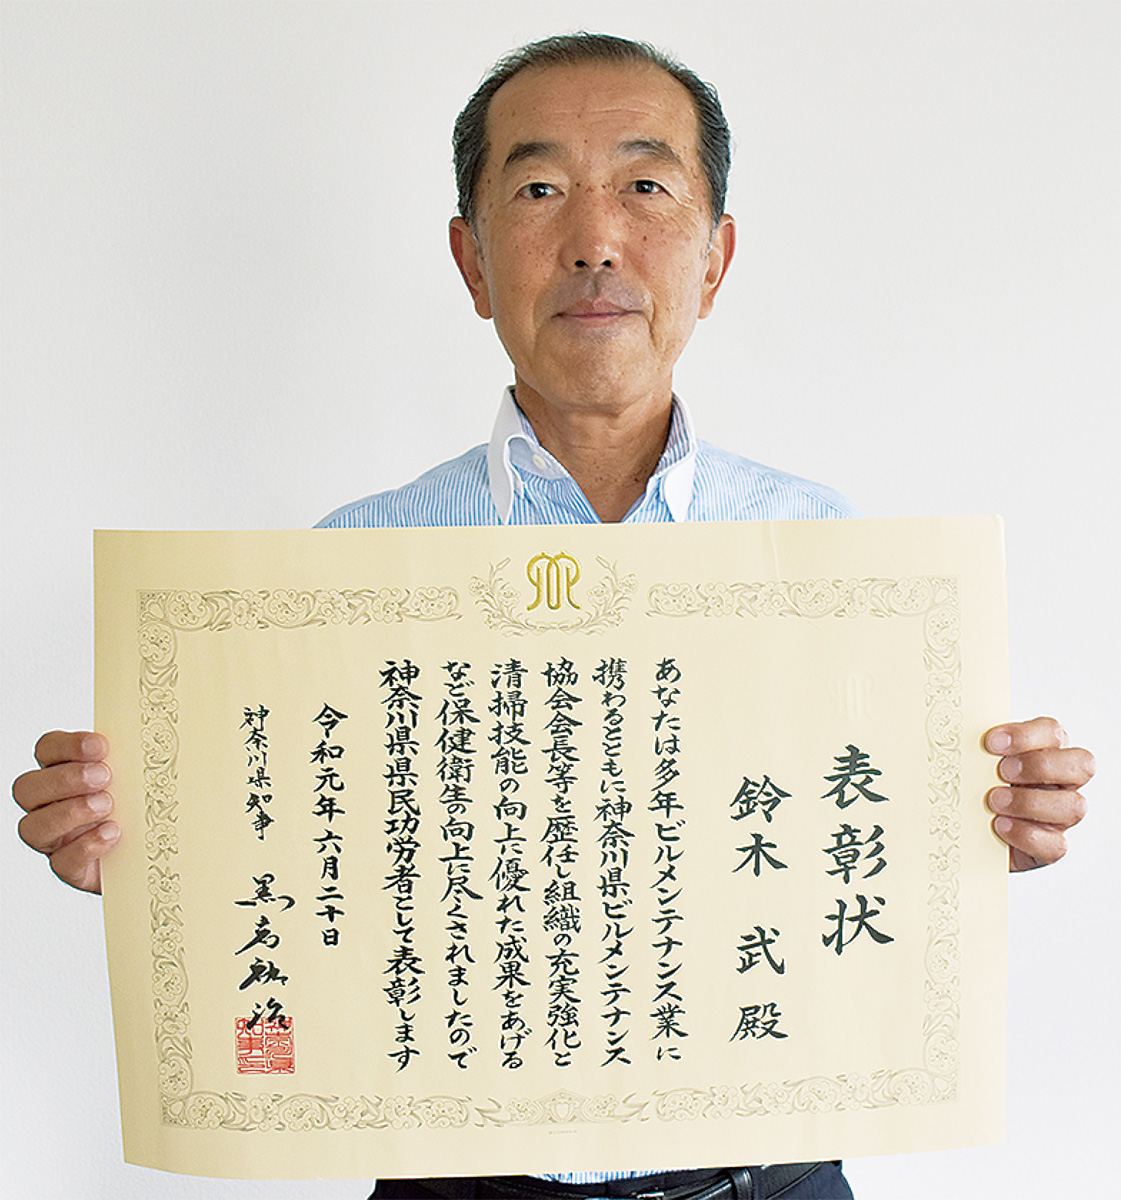 表彰状
鈴木 武 殿
あなたは多年ビルメンテナンス業に
携わるとともに神奈川県ビルメンテナンス
協会会長等を歴任し組織の充実強化と
清掃技能の向上に優れた成果をあげる
など保健衛生の向上に尽くされましたので
神奈川県県民功労者として表彰します
令和元年六月二十日
神奈川県知事 黒岩祐治